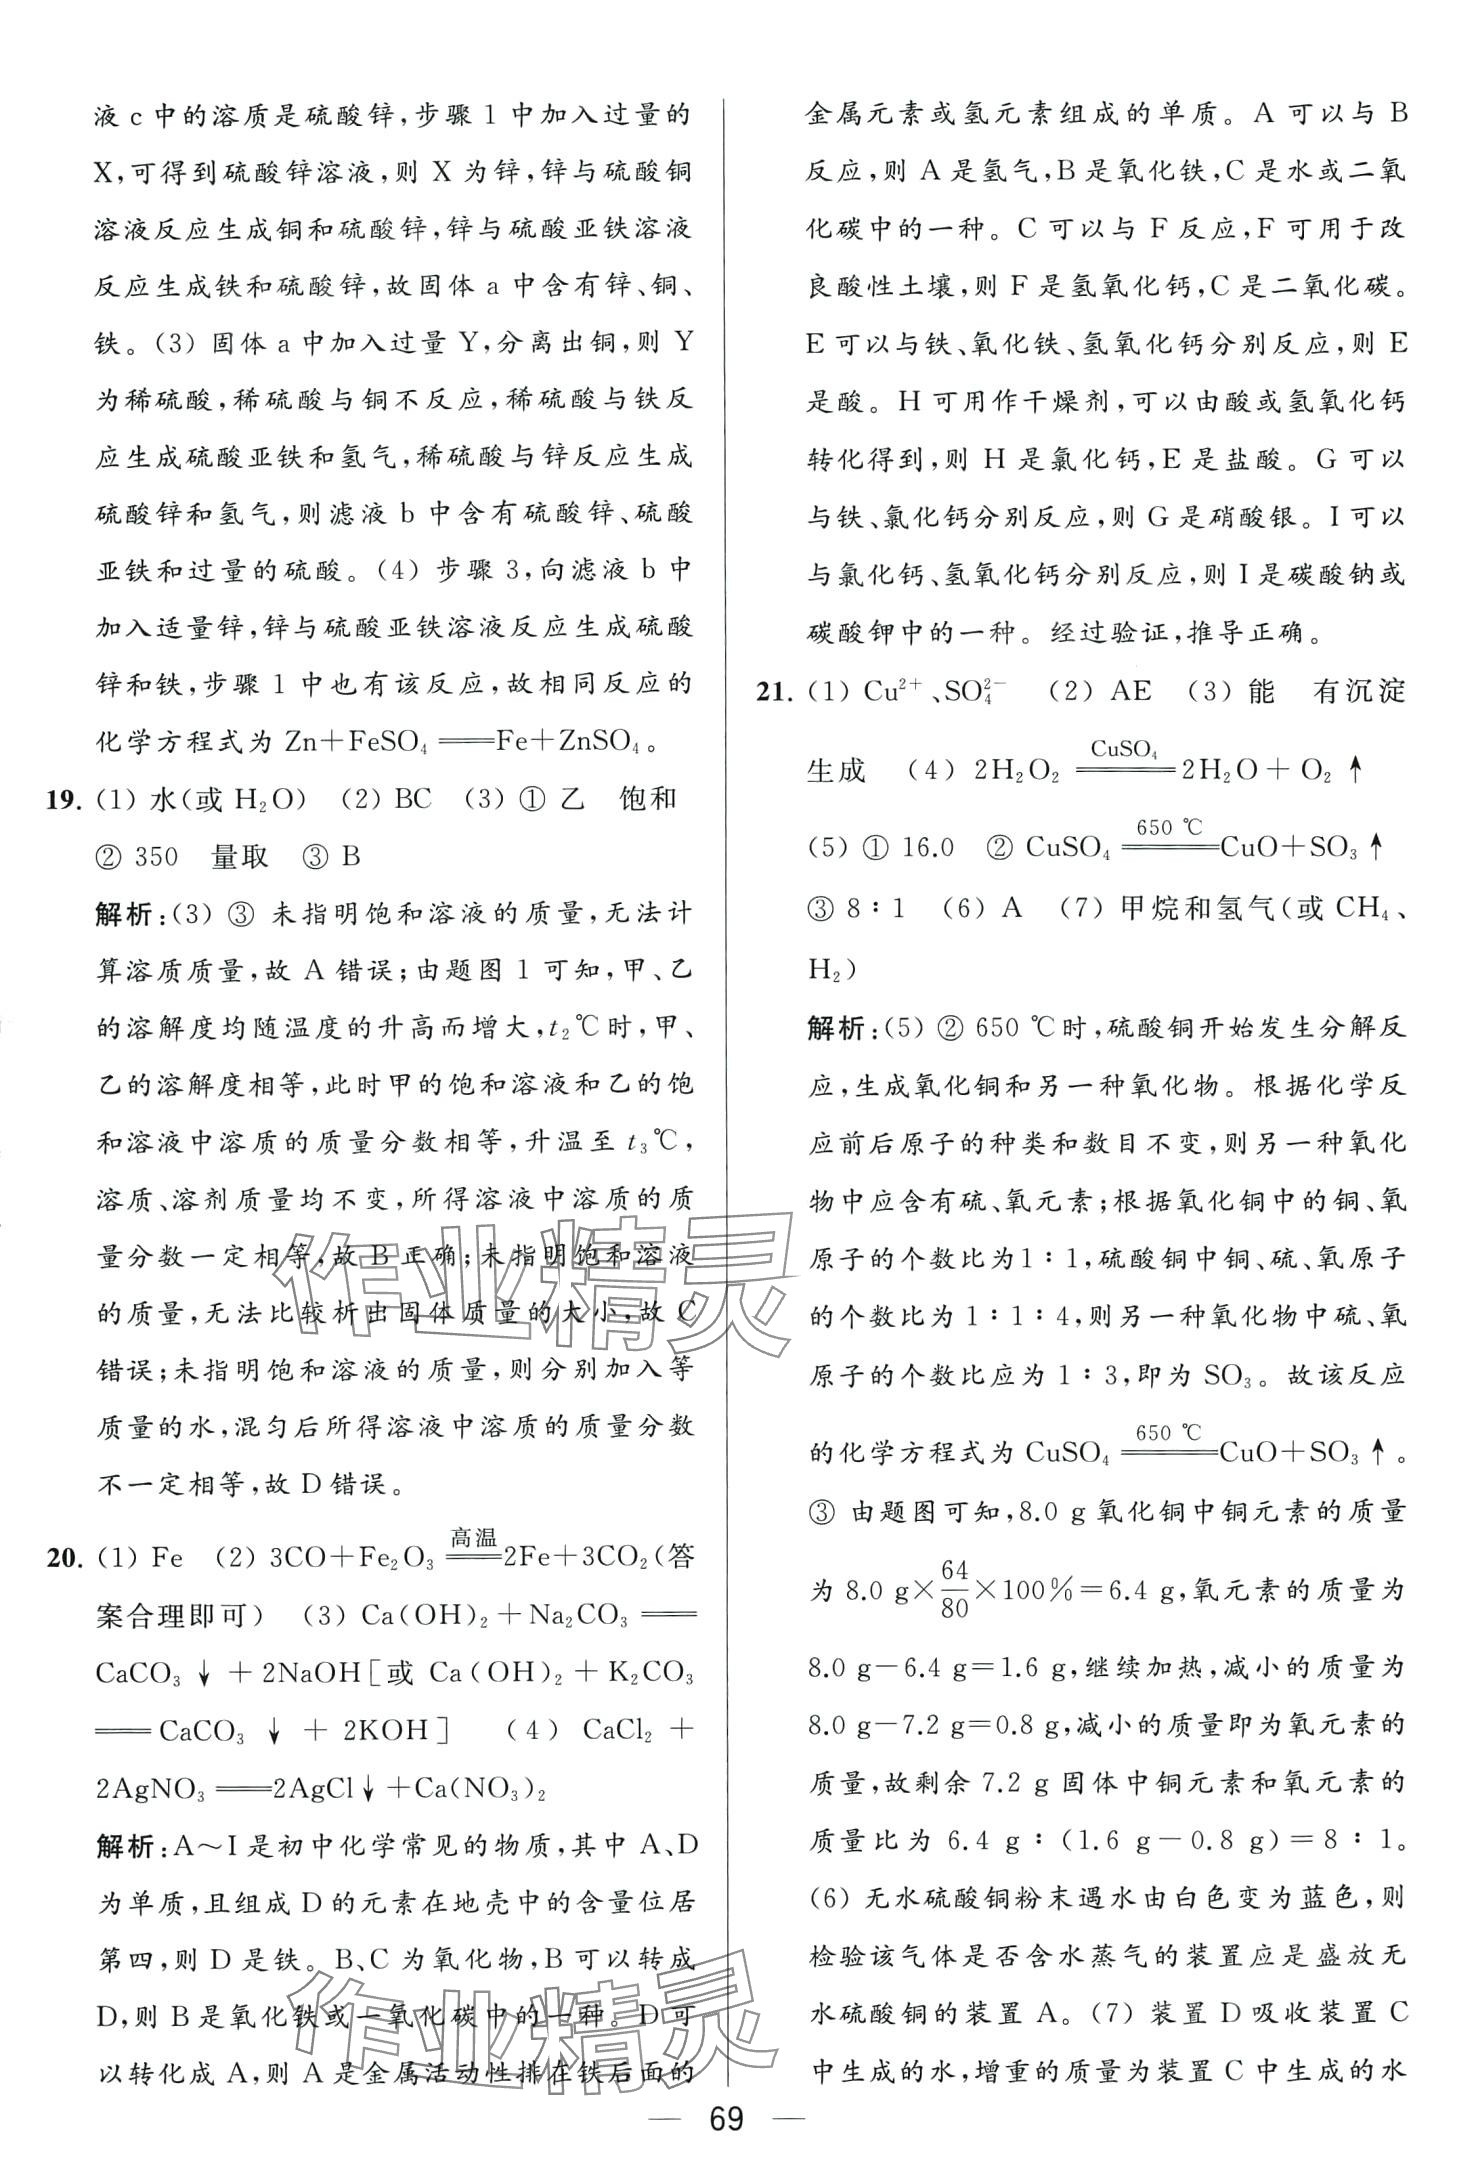 液 c 中的溶质是硫酸锌,步骤 1 中加入过量的
X,可得到硫酸锌溶液,则 X 为锌,锌与硫酸铜
溶液反应生成铜和硫酸锌,锌与硫酸亚铁溶液
反应生成铁和硫酸锌,故固体 a 中含有锌、铜、
铁。(3) 固体 a 中加入过量 Y,分离出铜,则 Y
为稀硫酸,稀硫酸与铜不反应,稀硫酸与铁反
应生成硫酸亚铁和氢气,稀硫酸与锌反应生成
硫酸锌和氢气,则滤液 b 中含有硫酸锌、硫酸
亚铁和过量的硫酸。(4) 步骤 3,向滤液 b 中
加入适量锌,锌与硫酸亚铁溶液反应生成硫酸
锌和铁,步骤 1 中也有该反应,故相同反应的
化学方程式为 Zn+FeSO₄══Fe+ZnSO₄。
19. (1) 水(或 H₂O) (2) BC (3) ① 乙 饱和
② 350 量取 ③ B
解析:(3) ③ 未指明饱和溶液的质量,无法计
算溶质质量,故 A 错误;由题图 1 可知,甲、乙
的溶解度均随温度的升高而增大,t₂℃时,甲、
乙的溶解度相等,此时甲的饱和溶液和乙的饱
和溶液中溶质的质量分数相等,升温至 t₃℃,
溶质、溶剂质量均不变,所得溶液中溶质的质
量分数一定相等,故 B 正确;未指明饱和溶液
的质量,无法比较析出固体质量的大小,故 C
错误;未指明饱和溶液的质量,则分别加入等
质量的水,混匀后所得溶液中溶质的质量分数
不一定相等,故 D 错误。
20. (1) Fe (2) 3CO+Fe₂O₃ 高温══ 2Fe+3CO₂(答
案合理即可) (3) Ca(OH)₂+Na₂CO₃══
CaCO₃↓+2NaOH[或 Ca(OH)₂+K₂CO₃
══CaCO₃↓+2KOH] (4) CaCl₂+
2AgNO₃══2AgCl↓+Ca(NO₃)₂
解析:A~I 是初中化学常见的物质,其中 A、D
为单质,且组成 D 的元素在地壳中的含量位居
第四,则 D 是铁。B、C 为氧化物,B 可以转成
D,则 B 是氧化铁或一氧化碳中的一种。D 可
以转化成 A,则 A 是金属活动性排在铁后面的
金属元素或氢元素组成的单质。A 可以与 B
反应,则 A 是氢气,B 是氧化铁,C 是水或二氧
化碳中的一种。C 可以与 F 反应,F 可用于改
良酸性土壤,则 F 是氢氧化钙,C 是二氧化碳。
E 可以与铁、氧化铁、氢氧化钙分别反应,则 E
是酸。H 可用作干燥剂,可以由酸或氢氧化钙
转化得到,则 H 是氯化钙,E 是盐酸。G 可以
与铁、氯化钙分别反应,则 G 是硝酸银。I 可以
与氯化钙、氢氧化钙分别反应,则 I 是碳酸钠或
碳酸钾中的一种。经过验证,推导正确。
21. (1) Cu²⁺、SO₄²⁻ (2) AE (3) 能 有沉淀
生成 (4) 2H₂O₂ CuSO₄══ 2H₂O+O₂↑
(5) ① 16.0 ② CuSO₄ 650 ℃══ CuO+SO₃↑
③ 8∶1 (6) A (7) 甲烷和氢气(或 CH₄、
H₂)
解析:(5) ② 650 ℃时,硫酸铜开始发生分解反
应,生成氧化铜和另一种氧化物。根据化学反
应前后原子的种类和数目不变,则另一种氧化
物中应含有硫、氧元素;根据氧化铜中的铜、氧
原子的个数比为 1∶1,硫酸铜中铜、硫、氧原子
的个数比为 1∶1∶4,则另一种氧化物中硫、氧
原子的个数比应为 1∶3,即为 SO₃。故该反应
的化学方程式为 CuSO₄ 650 ℃══ CuO+SO₃↑。
③ 由题图可知,8.0 g 氧化铜中铜元素的质量
为 8.0 g×64/80×100%=6.4 g,氧元素的质量为
8.0 g-6.4 g=1.6 g,继续加热,减小的质量为
8.0 g-7.2 g=0.8 g,减小的质量即为氧元素的
质量,故剩余 7.2 g 固体中铜元素和氧元素的
质量比为 6.4 g∶(1.6 g-0.8 g)=8∶1。
(6) 无水硫酸铜粉末遇水由白色变为蓝色,则
检验该气体是否含水蒸气的装置应是盛放无
水硫酸铜的装置 A。(7) 装置 D 吸收装置 C
中生成的水,增重的质量为装置 C 中生成的水
作业精灵
作业精灵
— 69 —